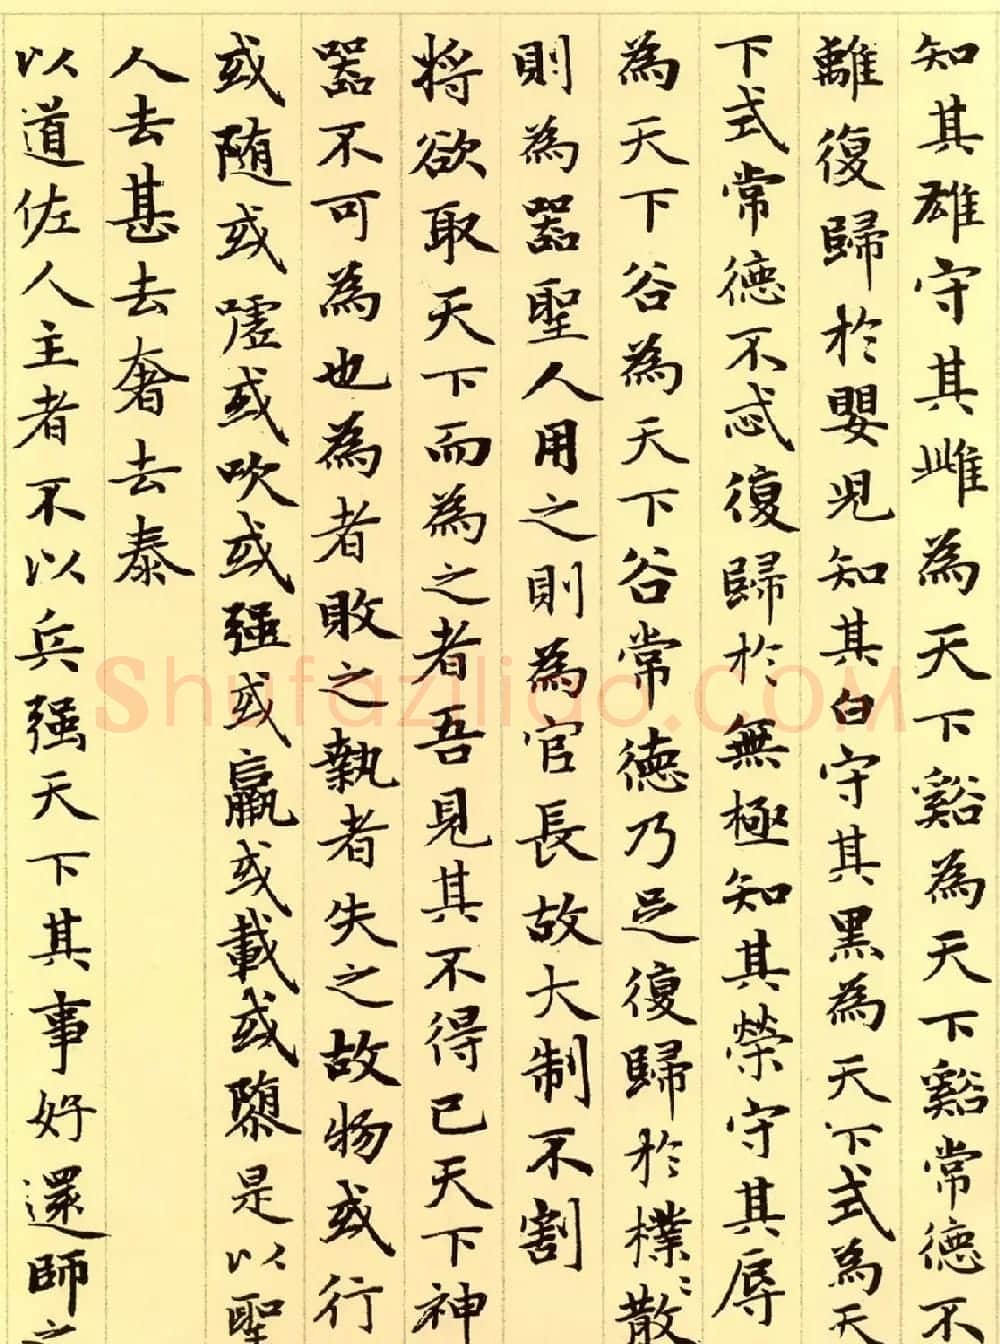 知其雄守其雌為天下谿為天下谿常德不
離復歸於嬰児知其白守其黑為天下式為天
下式常德不忒復歸於無極知其榮守其辱
為天下谷為天下谷常德乃足復歸於樸樸散
則為器聖人用之則為官長故大制不割
將欲取天下而為之者吾見其不得已天下神
器不可為也為者敗之執者失之故物或行
或随或嘘或吹或强或羸或載或隳是以聖
人去甚去奢去泰
以道佐人主者不以兵强天下其事好還師之
Shufaziliao.COM